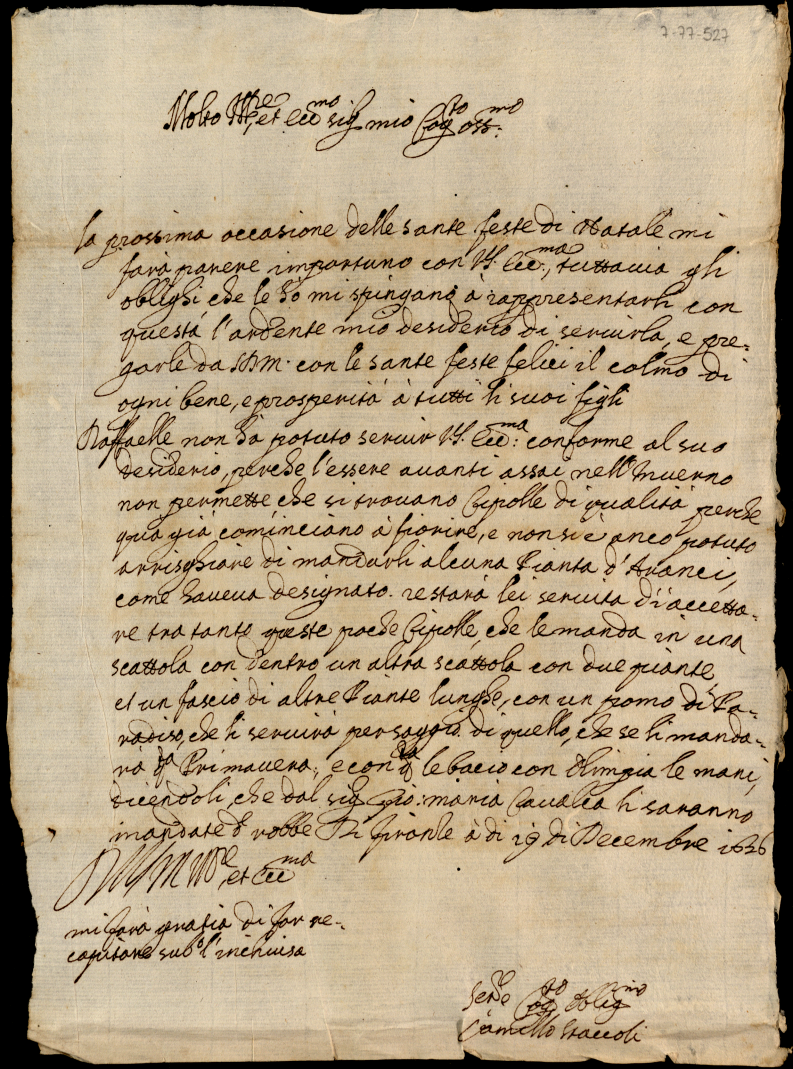 7-77-527
Molto Ill.re, et ecc.mo sig.r mio Cog.to oss.mo
la prossima occasione delle sante feste di Natale mi
farà parere importuno con V.S. Ecc.ma, tuttavia gli
oblighi che le hò mi spingano à rappresentarli con
questa l'ardente mio desiderio di servirla, e pre-
garle da con le sante feste felici il colmo di
ogni bene, e prosperità à tutti li suoi figli
Raffaelle non hà potuto servir V.S. Ecc.ma: conforme al suo
desiderio, perche l'essere avanti assai nell'Inverno
non permette che si trovano Cipolle di qualità, perche
quà già cominciano à fiorire, e non si è anco potuto
arrisghiare di mandarli alcuna Pianta d'Aranci,
come haveva designato. restarà lei servita di accetta-
re tra tanto queste poche Cipolle, che le manda in una
scattola con dentro un altra scattola con due piante,
et un fascio di altre Piante lunghe, con un pomo di Pa-
radiso, che li servirà per saggio di quello, che se li manda-
rà q.a Primavera, e con q.a le bacio con Olimpia le mani,
dicendoli, che dal sig.r Gio: maria Cavalca li saranno
mandate robbe Di firenle à di 19 di Decembre 1636
et Ecc.ma
mi farà gratia di far re-
capitare sub.o l'inchiusa
Ser.re Cog.to Oblig.mo
Camillo Staccoli